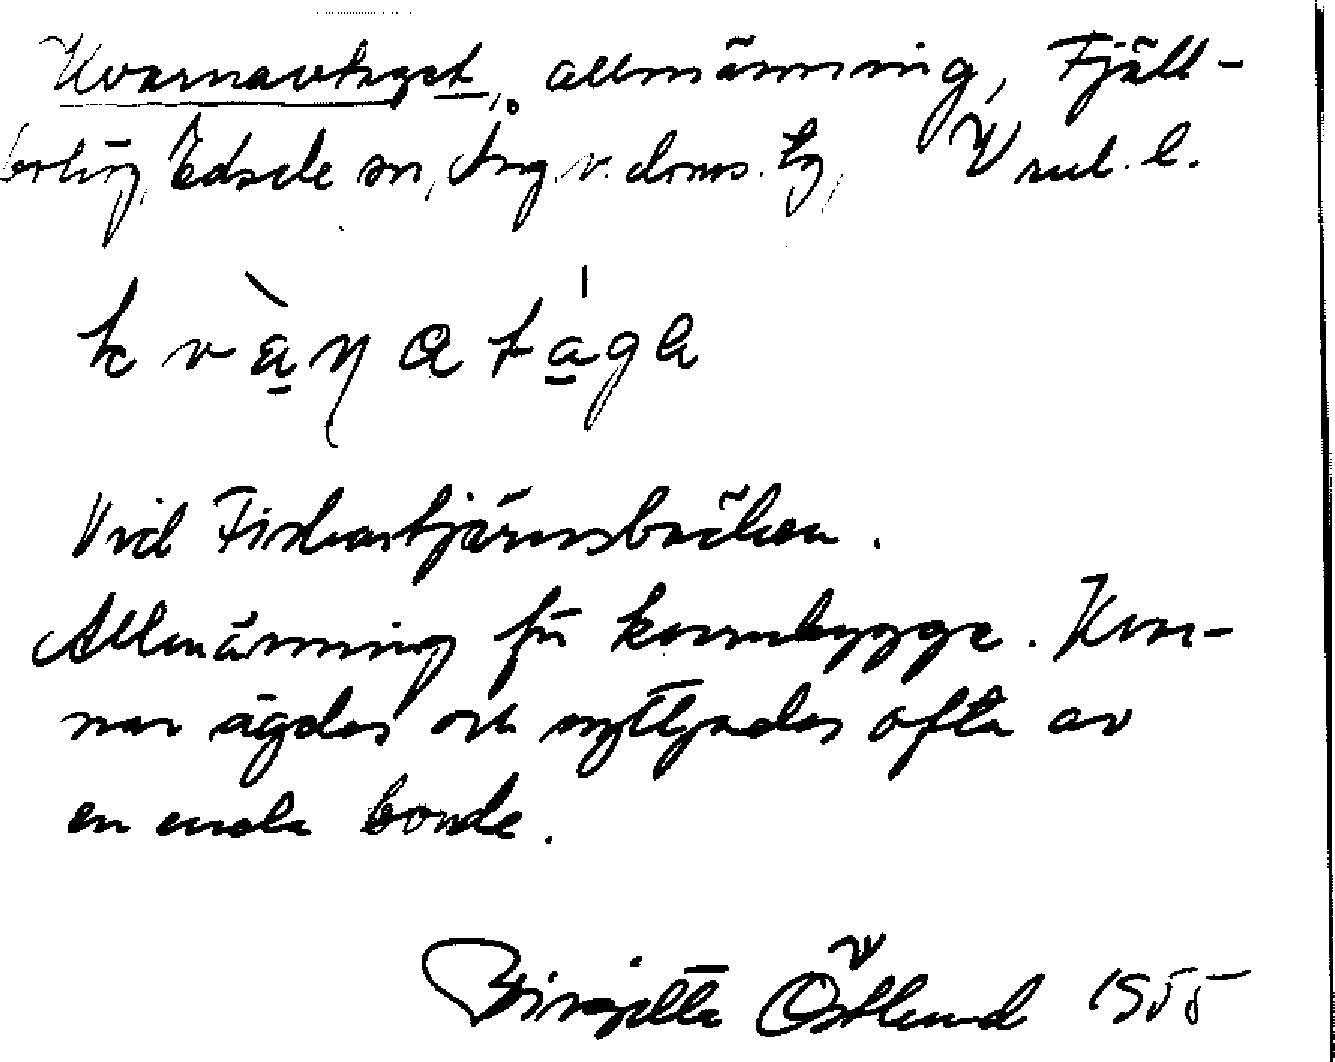 Kvarnavtaget, allmänning, Fjäll-
bohög, Edsele sn, Ång. v. doms. tg, V nul. l.
kvàṇatága
Vid Fiskartjärnsbäcken.
Allmänning för kvarnbygge. Kvar-
nar ägdes och nyttjades ofta av
en enda bonde.
Birgitta Östlund 1955